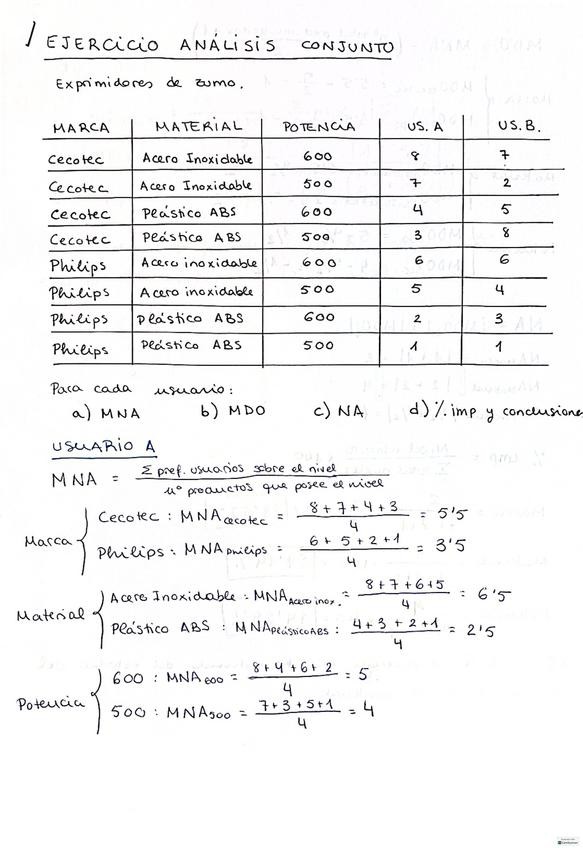 1 EJERCICIO ANÁLISIS CONJUNTO
Exprimidores de zumo.
MARCA MATERIAL POTENCIA US. A US. B.
Cecotec Acero Inoxidable 600 8 7
Cecotec Acero Inoxidable 500 7 2
Cecotec Plástico ABS 600 4 5
Cecotec Plástico ABS 500 3 8
Philips Acero inoxidable 600 6 6
Philips Acero inoxidable 500 5 4
Philips plástico ABS 600 2 3
Philips Plástico ABS 500 1 1
Para cada usuario:
a) MNA b) MDO c) NA d) % imp y conclusione
USUARIO A
MNA = Σ pref. usuarios sobre el nivel / nº productos que posee el nivel
Marca { Cecotec : MNA cecotec = 8+7+4+3 / 4 = 5'5
Philips : MNA philips = 6+5+2+1 / 4 = 3'5
Material { Acero Inoxidable : MNA Acero inox. = 8+7+6+5 / 4 = 6'5
Plástico ABS : MNA Plástico ABS : 4+3+2+1 / 4 = 2'5
Potencia { 600 : MNA 600 = 8+4+6+2 / 4 = 5
500 : MNA 500 = 7+3+5+1 / 4 = 4